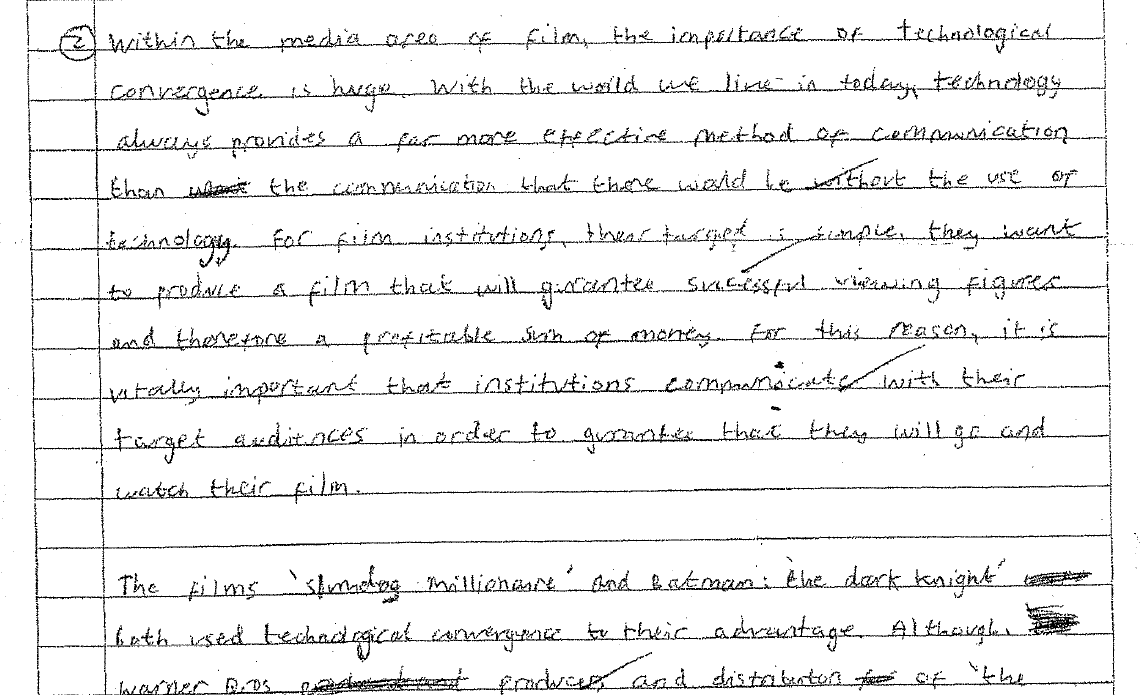 ② Within the media area of film, the importance of technological
convergence is huge. With the world we live in today, technology
always provides a far more effective method of communication
than the communication that there would be without the use of
technology. For film institutions, their target is simple, they want
to produce a film that will gurantee successful viewing figures
and therefore a profitable sum of money. For this reason, it is
vitally important that institutions communicate with their
target audiences in order to gurantee that they will go and
watch their film.
The films 'slumdog millionaire' and Batman: the dark knight'
both used technological convergence to their advantage. Although
warner Bros producer and distributor of 'the